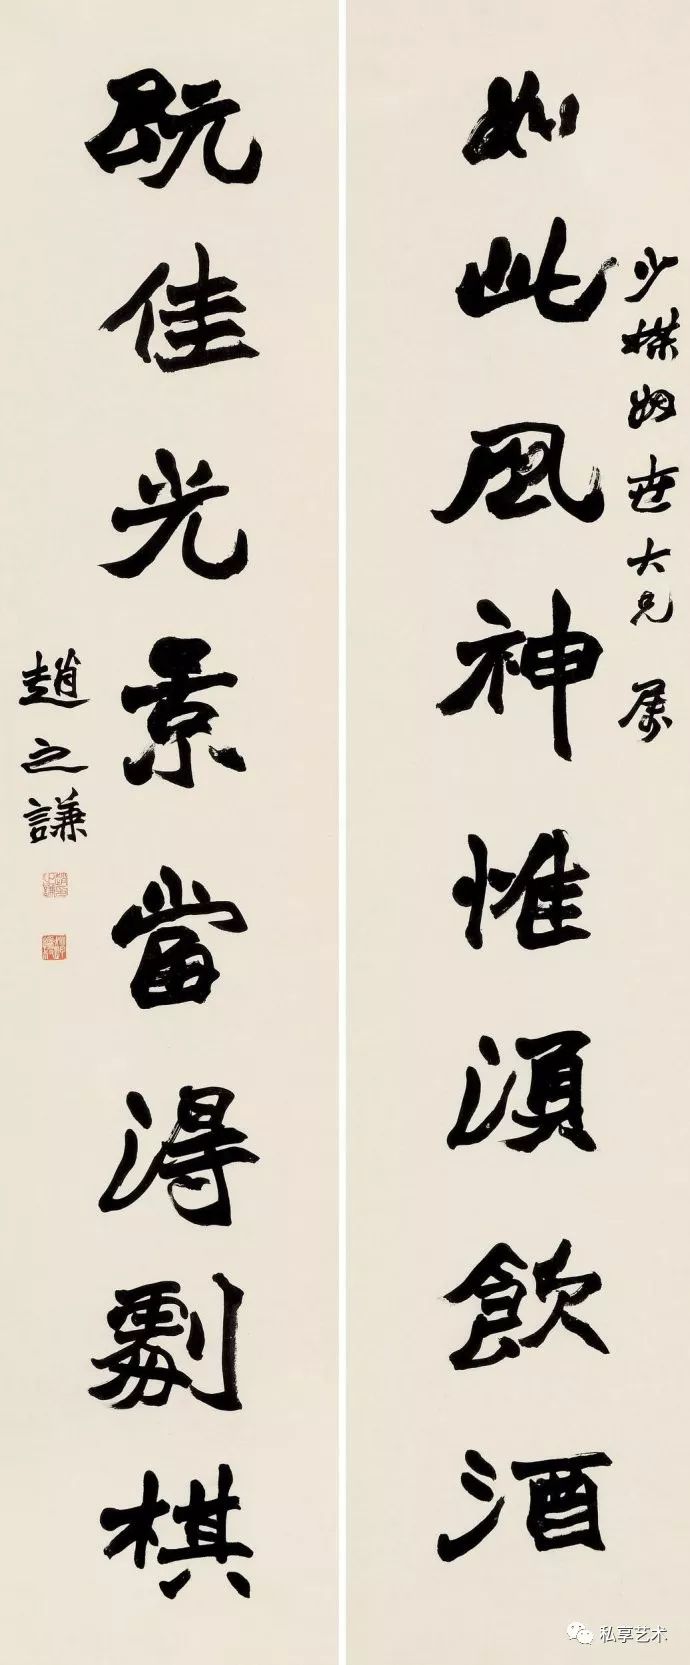 如此風神惟須飲酒
少楳姻世大兄屬
既佳光景當得劇棋
趙之謙
私享艺术